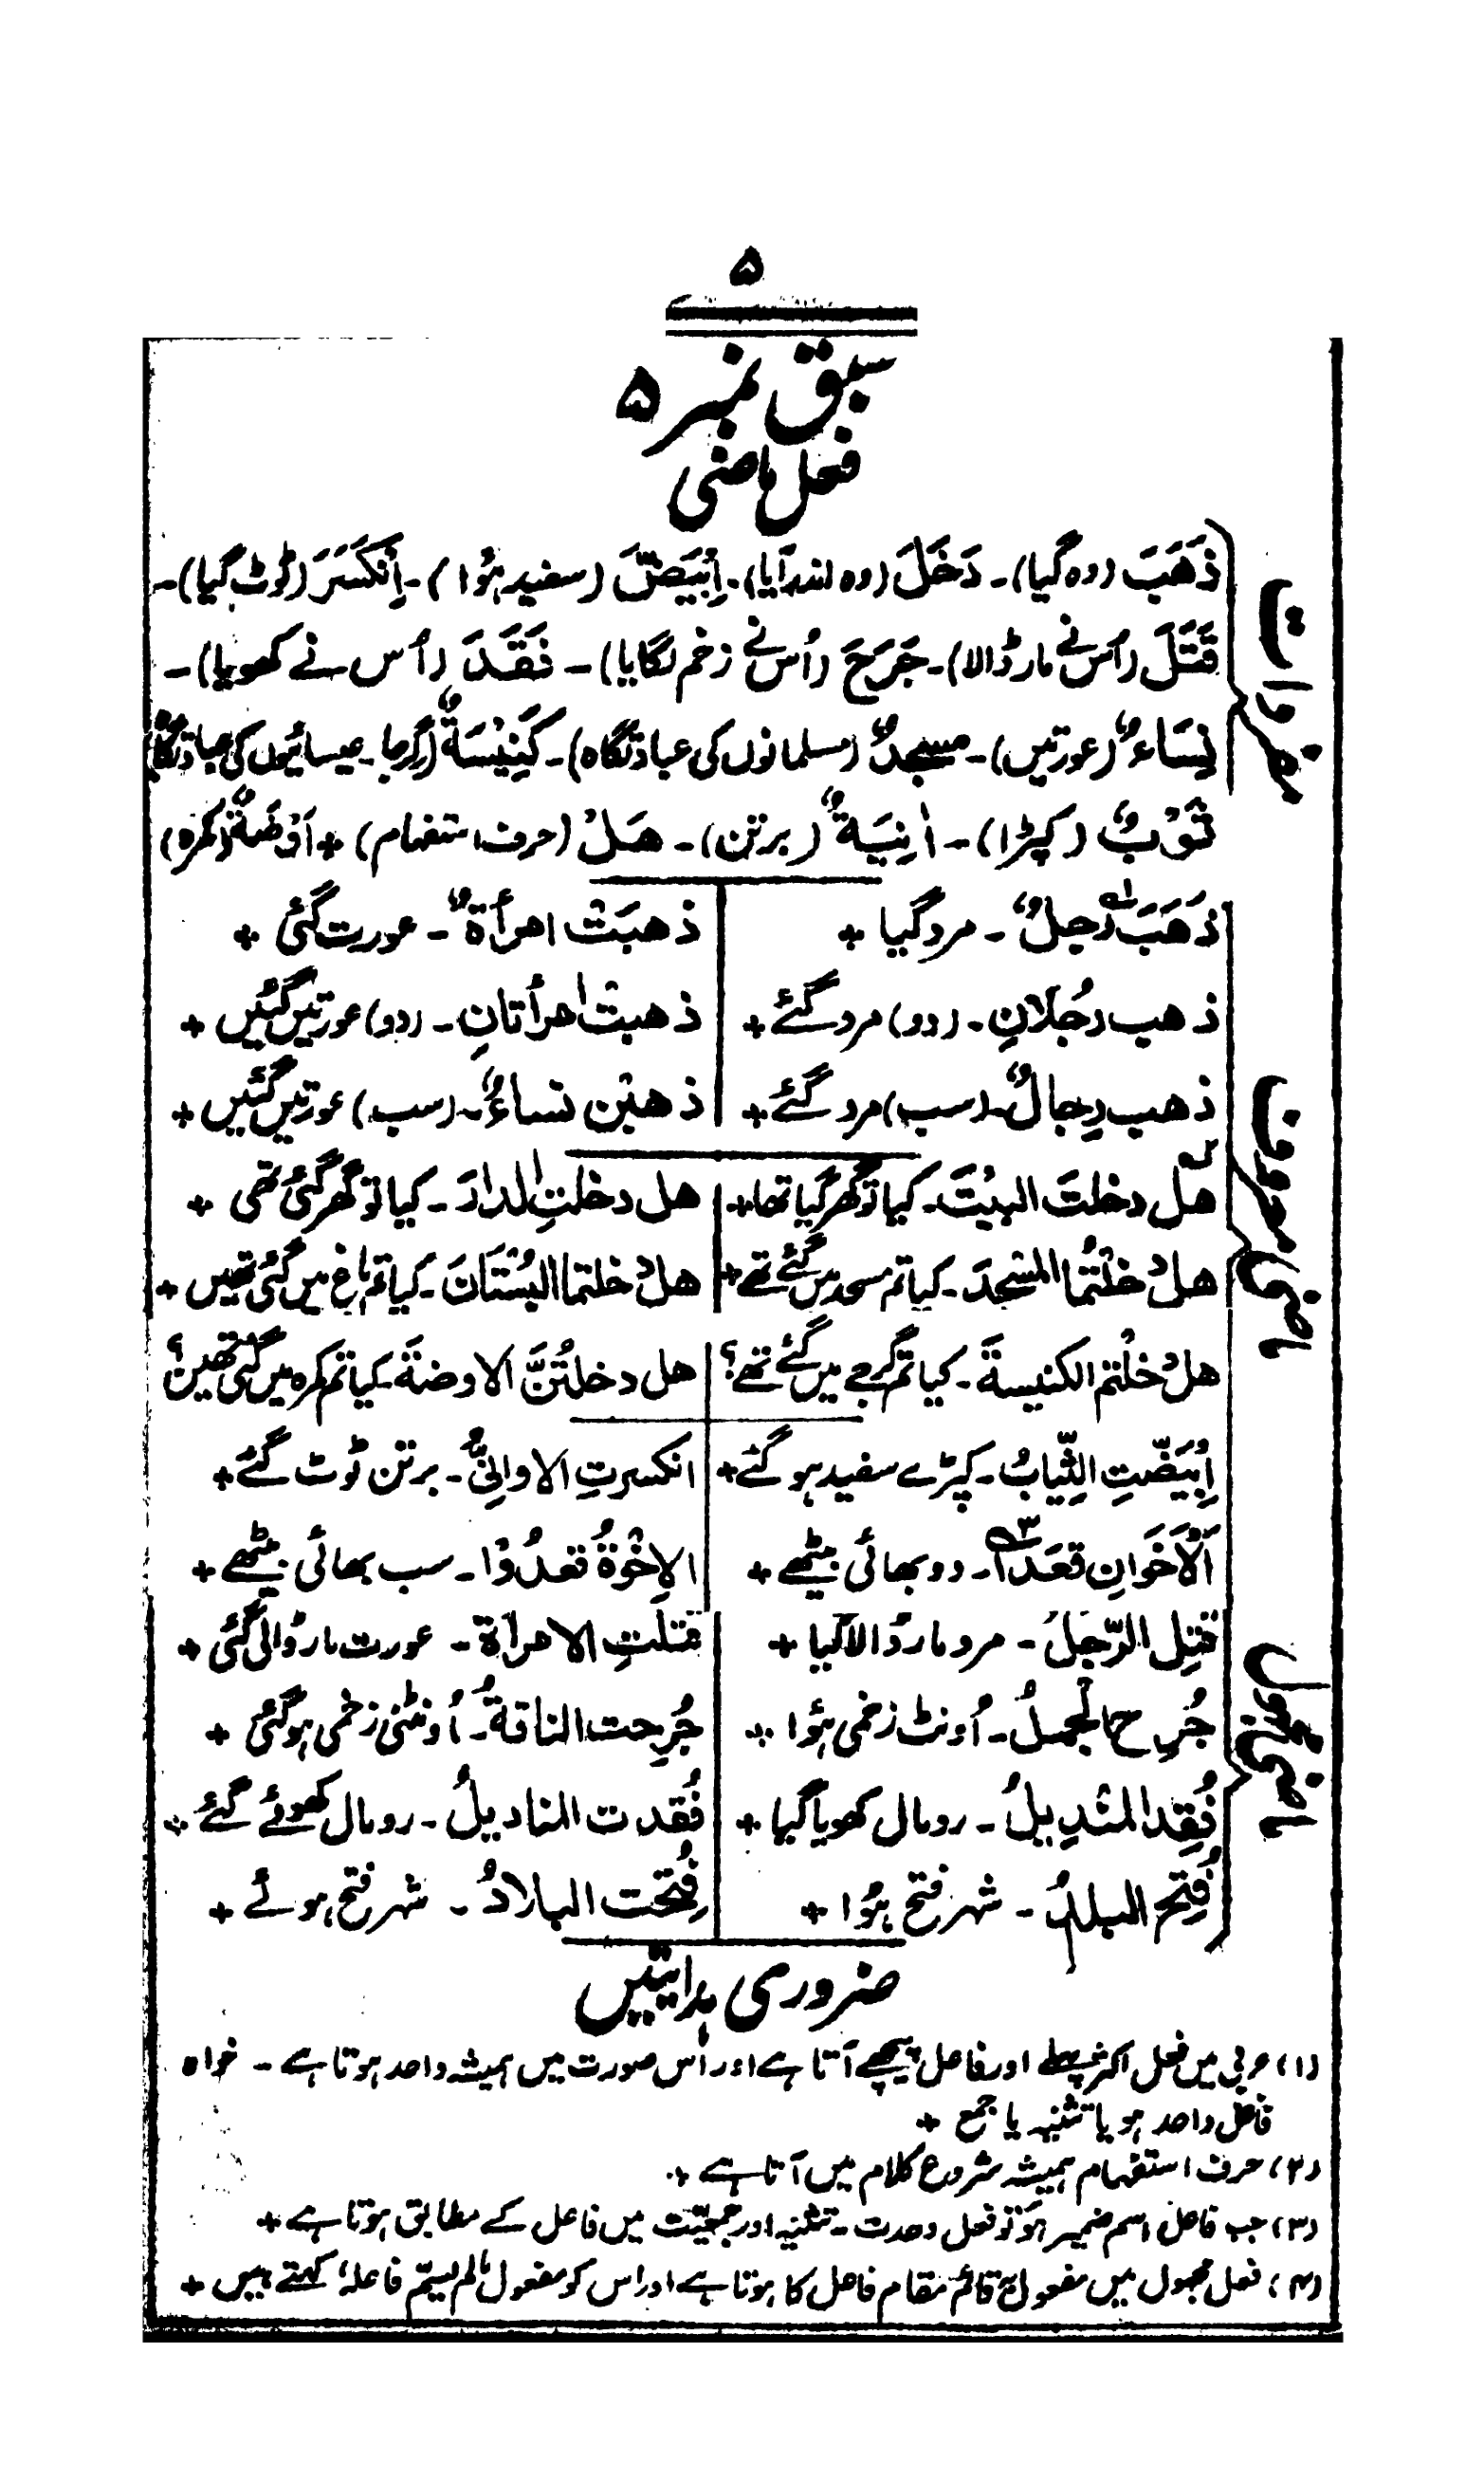 ۵
سبق نمبر ۵
فعل ماضی
مفردات
ذَهَبَ (وہ گیا)۔ دَخَلَ (وہ اندر آیا)۔ اِبْیَضَّ (سفید ہُوا)۔ اِنْکَسَرَ (ٹوٹ گیا)۔
قَتَلَ (اُس نے مار ڈالا)۔ جَرَحَ (اُس نے زخم لگایا)۔ فَقَدَ (اُس نے کھویا)۔
نِسَاءٌ (عورتیں)۔ مسجدٌ (مسلمانوں کی عبادتگاہ)۔ کَنِیْسَةٌ (گرجا۔ عیسائیوں کی عبادتگاہ)
ثَوْبٌ (کپڑا)۔ اٰنِیَةٌ (برتن)۔ هَلْ (حرف استفہام) + اَوْضَةٌ (کمرہ)
ماضی معروف
ذَهَبَ رجلٌ ۱؎۔ مرد گیا + ذهبَتْ امرأةٌ۔ عورت گئی +
ذهب رجُلَانِ۔ (دو) مرد گئے + ذهبتْ امرأتانِ۔ (دو) عورتیں گئیں +
ذهب رِجالٌ۔ (سب) مرد گئے + ذهبْن نساءٌ۔ (سب) عورتیں گئیں +
هل ۲؎ دخلتَ البیْتَ۔ کیا تو گھر گیا تھا + هل دخلتِ الدارَ۔ کیا تو گھر گئی تھی +
هل دخلْتُما المسْجدَ۔ کیا تم مسجد میں گئے تھے + هل دخلتما البُسْتَانَ۔ کیا تم باغ میں گئی تھیں +
هل دخلْتم الکنیسةَ۔ کیا تم گرجے میں گئے تھے؟ هل دخلتُنَّ الاوضةَ۔ کیا تم کمرہ میں گئی تھیں؟
اِبْیَضَّتِ الثِّیَابُ۔ کپڑے سفید ہو گئے + انکسرتِ الاوانِیُّ۔ برتن ٹوٹ گئے +
اَلْاَخَوَانِ قعَدَا ۳؎۔ دو بھائی بیٹھے + الاِخْوَةُ قعدُوْا۔ سب بھائی بیٹھے +
ماضی مجہول
قتِل الرّجلُ۔ مرد مار ڈالا گیا + قتلتِ الامرأة۔ عورت مار ڈالی گئی +
جُرِح الجملُ۔ اُونٹ زخمی ہُوا + جُرِحت الناقةُ۔ اُونٹنی زخمی ہو گئی +
فُقِد المندِیلُ۔ رومال کھویا گیا + فُقدت المنادیلُ۔ رومال کھوئے گئے +
فُتِح البلدُ۔ شہر فتح ہُوا + فُتِحت البلادُ۔ شہر فتح ہوئے +
ضروری ہدایتیں
(۱) عربی میں فعل اکثر پہلے اور فاعل پیچھے آتا ہے اور اُس صورت میں ہمیشہ واحد ہوتا ہے۔ خواہ
فاعل واحد ہو یا تثنیہ یا جمع +
(۲) حرف استفہام ہمیشہ شروع کلام میں آتا ہے +
(۳) جب فاعل اسم ضمیر ہو تو فعل وحدت۔ تثنیہ اور جمعیّت میں فاعل کے مطابق ہوتا ہے +
(۴) فعل مجہول میں مفعول بہ قائم مقام فاعل کا ہوتا ہے اور اس کو مفعول مالم یسمّ فاعلہٗ کہتے ہیں +